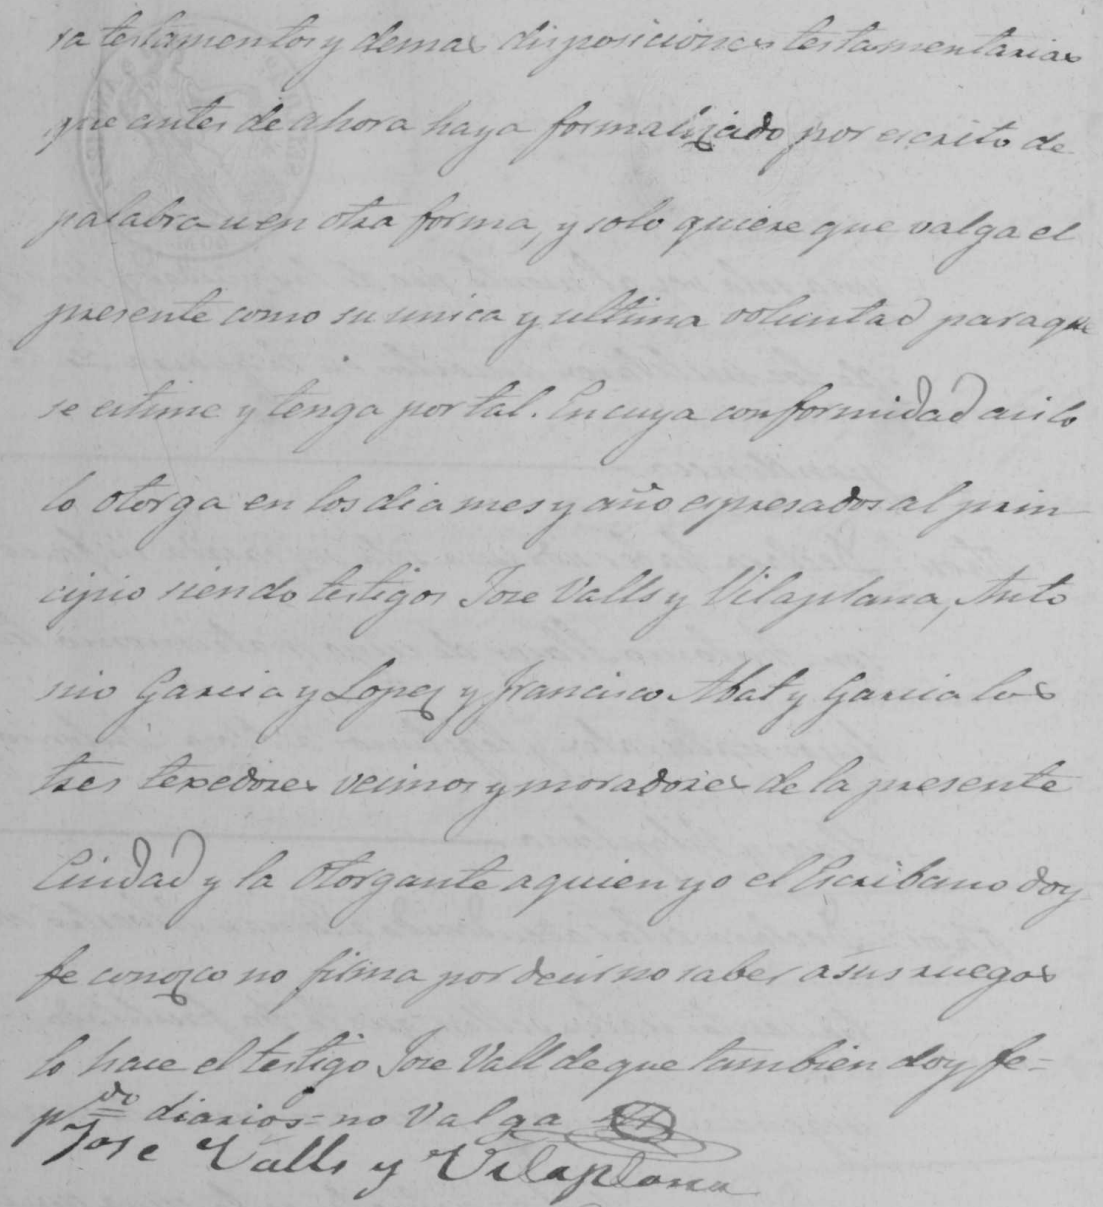 ra testamentos y demas disposiciones testamentarias
que antes de ahora haya formalizado por escrito de
palabra u en otra forma, y solo quiere que valga el
presente como su unica y ultima voluntad para que
se estime y tenga por tal. En cuya conformidad asi lo
lo otorga en los dia mes y año espresados al prin
cipio siendo testigos Jose Valls y Vilaplana, Anto
nio Garcia y Lopez y Francisco Abat y Garcia los
tres texedores vecinos y moradores de la presente
Ciudad y la Otorgante a quien yo el Escribano doy
fe conozco no firma por decir no saber a sus ruegos
lo hace el testigo Jose Vall de que tambien doy fe=
pdo diarios=no Valga
Jose Valls y Vilaplana